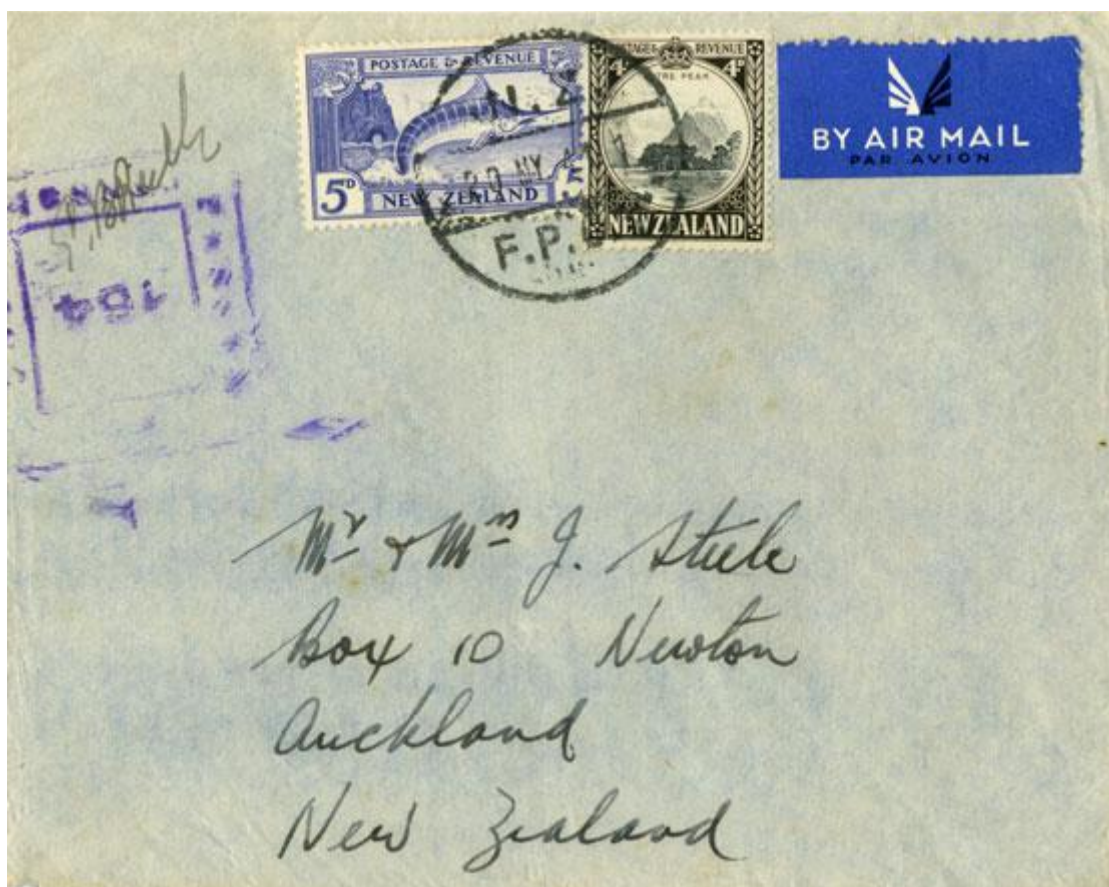 POSTAGE & REVENUE
5D
NEW ZEALAND
POSTAGE & REVENUE
4D 4D
PEAK
NEW ZEALAND
N.Z.
MY
F.P.
BY AIR MAIL
PAR AVION
Mr & Mrs J. Steele
Box 10 Newton
Auckland
New Zealand